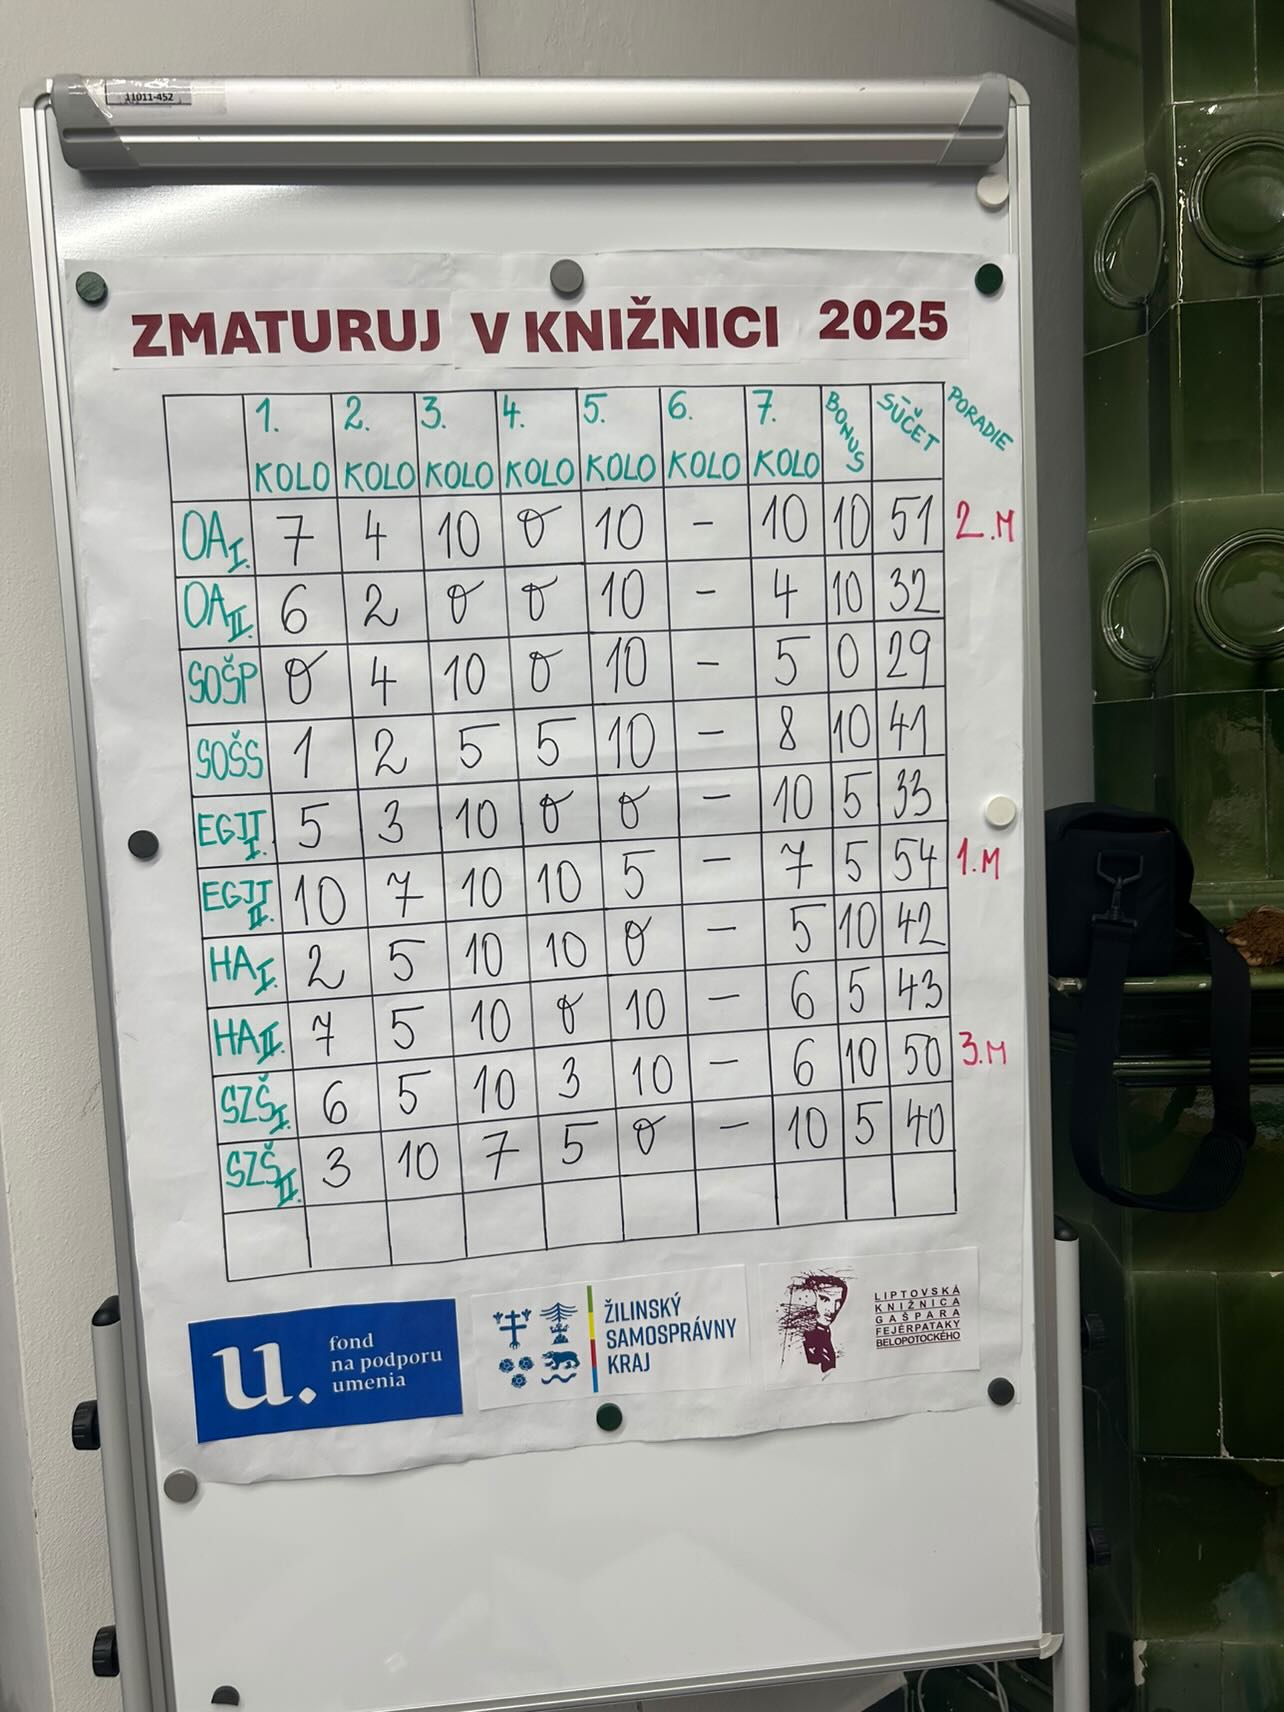 11011-452
ZMATURUJ V KNIŽNICI 2025
1. KOLO 2. KOLO 3. KOLO 4. KOLO 5. KOLO 6. KOLO 7. KOLO BONUS SÚČET PORADIE
OA I. 7 4 10 0 10 - 10 10 51 2.M
OA II. 6 2 0 0 10 - 4 10 32
SOŠP 0 4 10 0 10 - 5 0 29
SOŠS 1 2 5 5 10 - 8 10 41
EGJT I. 5 3 10 0 0 - 10 5 33
EGJT II. 10 7 10 10 5 - 7 5 54 1.M
HA I. 2 5 10 10 0 - 5 10 42
HA II. 7 5 10 0 10 - 6 5 43
SZŠ I. 6 5 10 3 10 - 6 10 50 3.M
SZŠ II. 3 10 7 5 0 - 10 5 40
u. fond
na podporu
umenia
ŽILINSKÝ
SAMOSPRÁVNY
KRAJ
LIPTOVSKÁ
KNIŽNICA
GAŠPARA
FEJÉRPATAKY
BELOPOTOCKÉHO